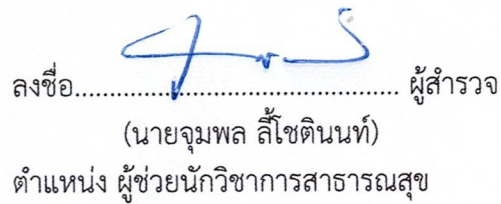 ลงชื่อ........................................... ผู้สำรวจ
(นายจุมพล ลี้โชตินนท์)
ตำแหน่ง ผู้ช่วยนักวิชาการสาธารณสุข